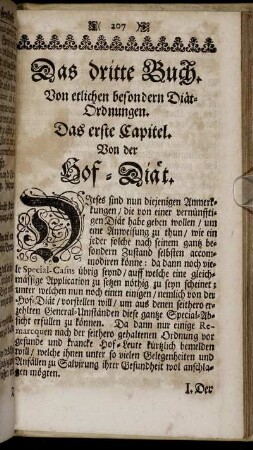 ( 207 )
Das dritte Buch.
Von etlichen besondern Diät-
Ordnungen.
Das erste Capitel.
Von der
Hof-Diät.
Dieses sind nun diejenigen Anmerk-
kungen / die von einer vernünffti-
gen Diät habe geben wollen / um
eine Anweisung zu thun / wie ein
jeder solche nach seinem gantz be-
sondern Zustand selbsten accom-
modiren könne: da dann noch vie-
le Special-Casus übrig seynd / auff welche eine gleich-
mässige Application zu setzen nöthig zu seyn scheinet;
unter welchen nun noch einen einigen / nemlich von der
Hof-Diät / vorstellen will / um aus denen seithero er-
zehlten General-Umständen diese gantze Special-Ab-
sicht erfüllen zu können. Da dann nur einige Re-
marcquen nach der seithero gehaltenen Ordnung vor
gesunde und krancke Hof-Leute kürtzlich bemelden
will / welche ihnen unter so vielen Gelegenheiten und
Anfällen zu Salvirung ihrer Gesundheit wol anschla-
gen mögten.
I. Der